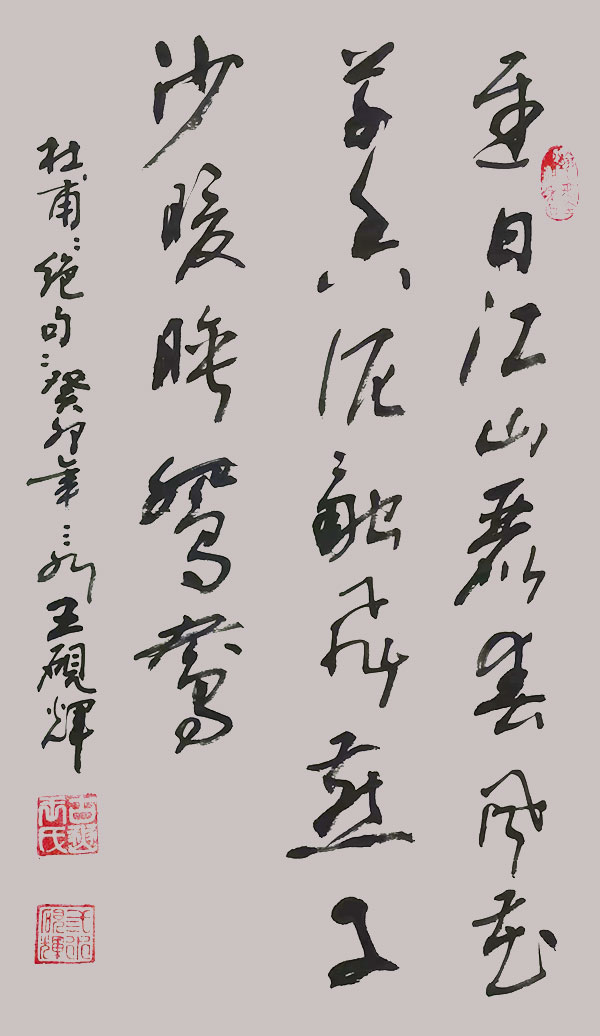 遲日江山麗春風花
草香泥融飛燕子
沙暖睡鴛鴦
杜甫：絶句：癸卯年三水王硯輝